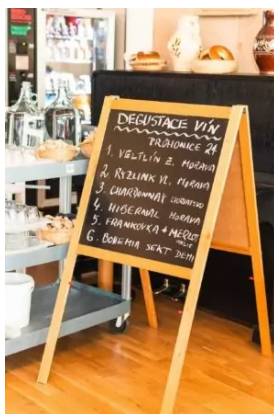 DEGUSTACE VÍN
PRŮHONICE 24
1. VELTLÍN Z. MORAVA
2. RYZLINK VL. MORAVA
3. CHARDONNAY
4. HIBERNAL MORAVA
5. FRANKOVKA + MERLOT
6. BOHEMIA SEKT DEMI